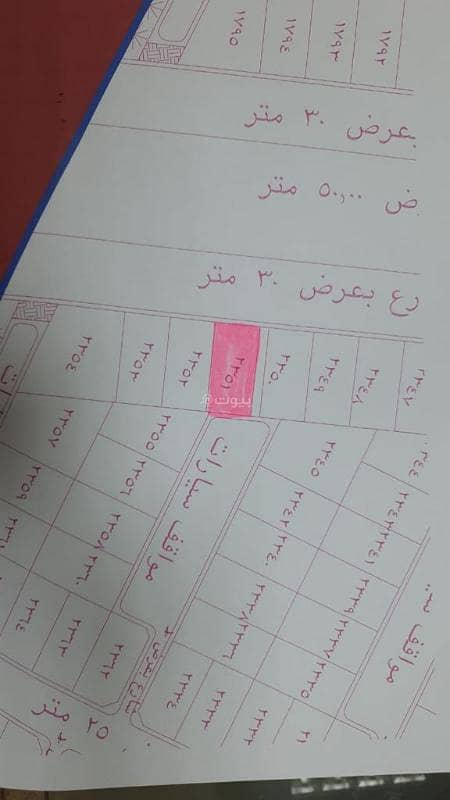 ١٧٩٥
١٧٩٤
١٧٩٣
١٧٩٢
بعرض ٣٠ متر
ض ٥٠,٠٠ متر
رع بعرض ٣٠ متر
٢٣٥٤
٢٣٥٣
٢٣٥٢
٢٣٥١
٢٣٥٠
٢٣٤٩
٢٣٤٨
٢٣٤٧
بيوت
٢٣٥٧
٢٣٥٥
٢٣٤٥
٢٣٤٤
٢٣٥٩
٢٣٥٦
مواقف سيارات
٢٣٤٢
٢٣٤٣
٢٣٥٨
٢٣٤٠
٢٣٤١
٢٣٦٠
٢٣٣٨
٢٣٣٩
مواقف سيـ
٢٣٦٤
٢٣٦٣
٢٣٦٢
٢٣٣٦
٢٣٣٧
٢٣٣٤
٢٣٣٥
٢٣٣٢
شارع بعرض
٢٥ متر